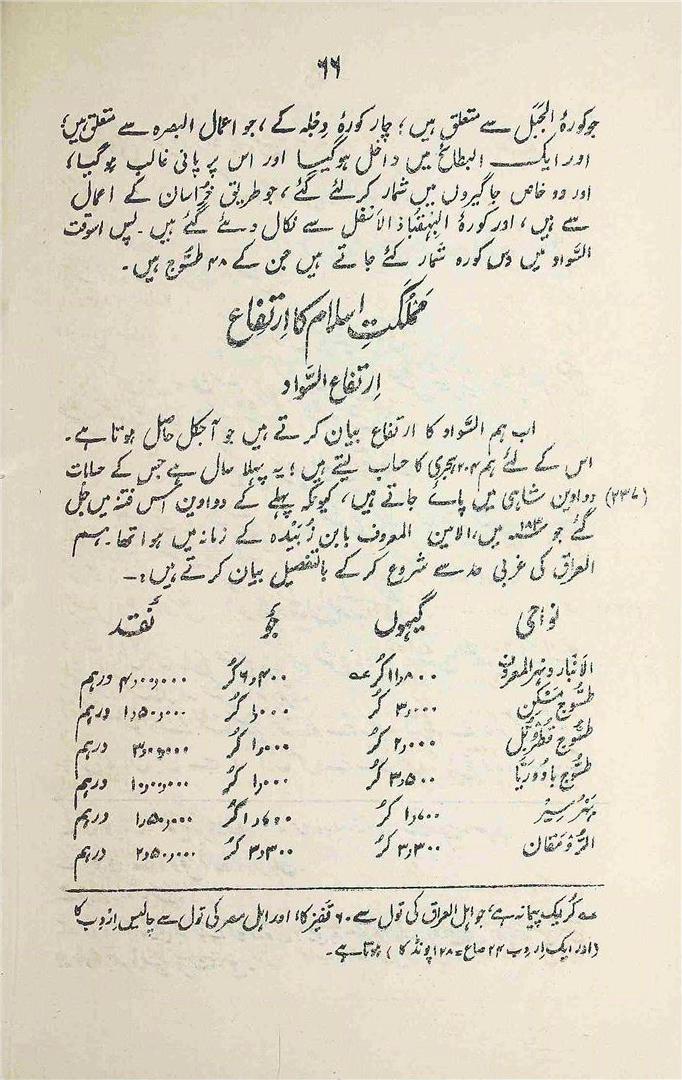 ۶۶
جو کورۂ الجَبَل سے متعلق ہیں؛ چار کورۂ دِجلہ کے، جو اعمال البصرہ سے متعلق ہیں؛
اور ایک البطائح میں داخل ہوگیا اور اس پر پانی غالب ہوگیا،
اور دو خاص جاگیروں میں شمار کرلئے گئے، جو طریق خراسان کے اعمال
سے ہیں، اور کورۂ البِہْقُباذ الاَنفل سے نکال دئے گئے ہیں۔ پس اسوقت
السَّواد میں دس کورہ شمار کئے جاتے ہیں جن کے ۴۸ طَسّوج ہیں۔
مَمْلُکتِ اسلام کا اِرتِفاع
اِرتفاع السَّواد
اب ہم السَّواد کا ارتفاع بیان کرتے ہیں جو آجکل حاصل ہوتا ہے۔
اس کے لئے ہم ۲۰۴ ہجری کا حساب لیتے ہیں؛ یہ پہلا سال ہے جس کے حسابات
(۲۳۷) دواوین شاہی میں پائے جاتے ہیں، کیونکہ پہلے کے دواوین اُس فتنہ میں جل
گئے جو ۱۸۳ھ میں، الامین المعروف بابن زُبَیدہ کے زمانہ میں ہوا تھا۔ ہم
العراق کی غربی حد سے شروع کرکے بالتفصیل بیان کرتے ہیں:۔
نواحی گیہوں جَو نَقْد
الانبار و نہر المعروف ۱۱,۸۰۰ کُر؎ ۶,۴۰۰ کُر ۴,۰۰,۰۰۰ درہم
طَسُّوج مَسْکِن ۳,۰۰۰ کُر ۱,۰۰۰ کُر ۱,۵۰,۰۰۰ درہم
طَسُّوج قُطْرَبُّل ۲,۰۰۰ کُر ۱,۰۰۰ کُر ۳,۰۰,۰۰۰ درہم
طَسُّوج بادُورَیَا ۳,۵۰۰ کُر ۱,۰۰۰ کُر ۱۰,۰۰,۰۰۰ درہم
بَہُرَسِیْر ۱,۷۰۰ کُر ۱,۷۰۰ کُر ۱,۵۰,۰۰۰ درہم
الرُّومَقان ۳,۳۰۰ کُر ۳,۳۰۰ کُر ۲,۵۰,۰۰۰ درہم
؎ کُر ایک پیمانہ ہے، جو اہل العراق کی تول سے ۶۰ قَفِیز کا، اور اہل مصر کی تول سے چالیس اِرْدب کا
(اور ایک اِردب ۲۴ صاع = ۱۲۸ پونڈ کا) ہوتا ہے۔